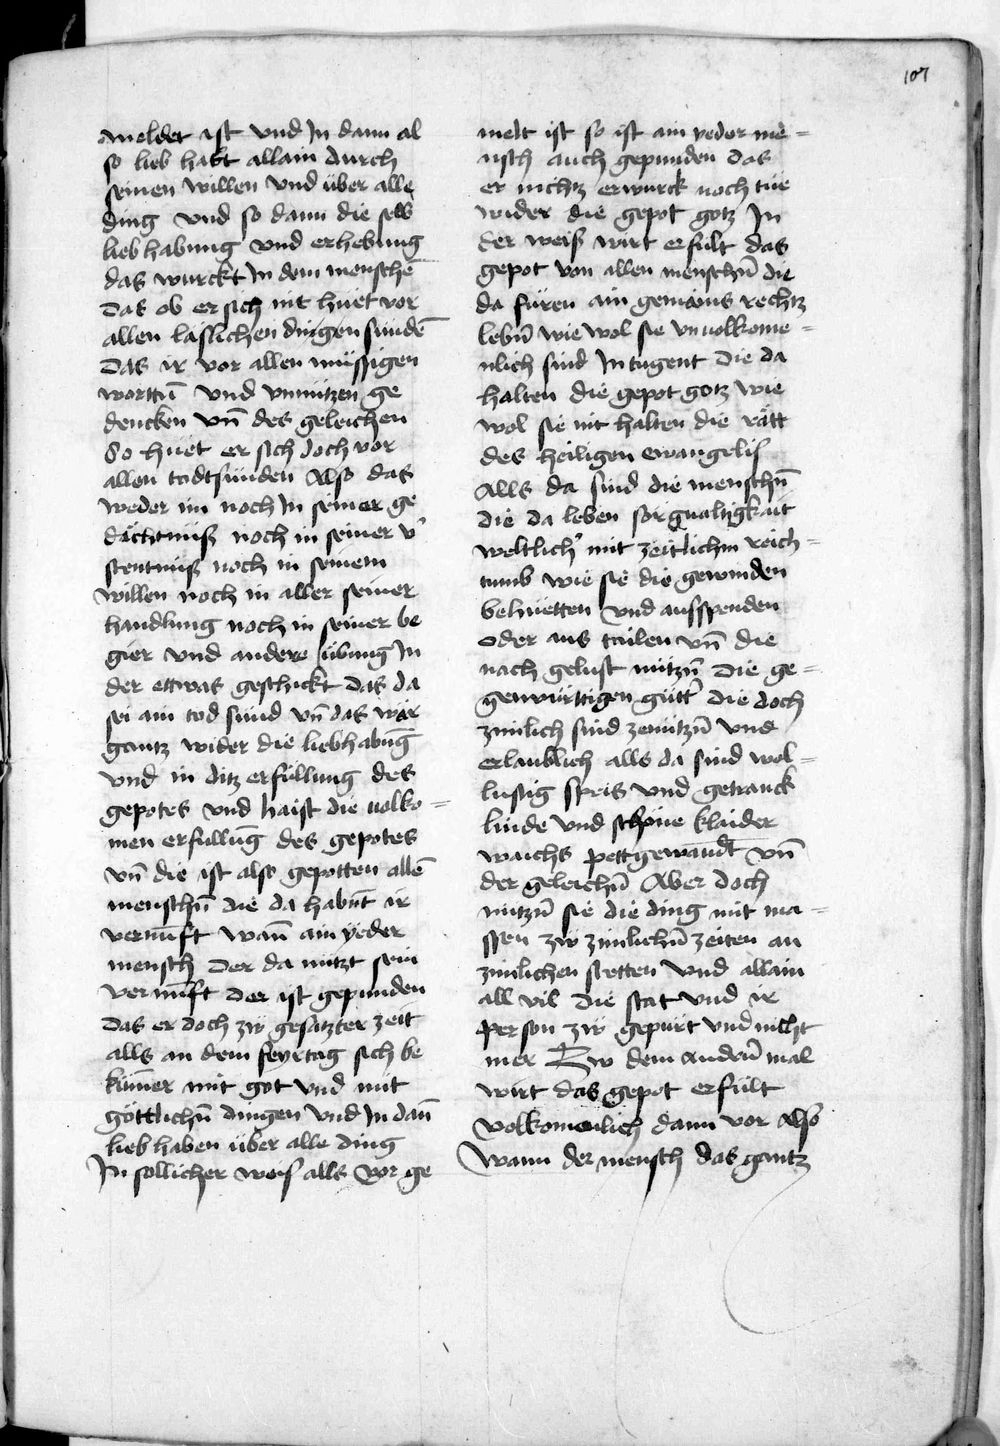 107
meldet ist vnd In dann al
so lieb habt allain durch
seinen willen vnd über alle
ding vnd so dann die selb
lieb habung vnd erhebung
das wurckt In dem menschē
Das ob er sich nit hüet vor
allen läslichen dingen sundē
Das ir vor allen müssigen
worttn̄ vnd vnnützen ge
dencken vn̄ des geleichen
So hüet er sich doch vor
allen todtsünden Also das
weder im noch In seiner ge
dächtnüß noch in seiner v̓
stentnüß noch in seinem
willen noch in aller seiner
handlung noch in seiner be
gier vnd andere übung In
der ettwas geschickt das da
sei ain tod sünd vn̄ das wär
gantz wider die liebhabūg
vnd in ditz erfüllung des
gepotes vnd haist die uolko=
men erfullūg des gepotes
vn̄ die ist also gepotten allē
menschn̄ die da habn̄t ir
vernūft wan̄ ain yeder
mensch der da nützt sein
vernūft der ist gepunden
das er doch zw̎ gesatzter zeit
alls an dem feyrtag sich be
küm̄er mit got vnd mit
göttlichn̄ dingen vnd In dan̄
lieb haben über alle ding
In sollicher weis alls vor ge
melt ist so ist ain yeder mē=
nsch auch gepunden das
er nichtz erwurck noch tüe
wider die gepot gotz In
der weiß wirt erfült das
gepot von allen menschn̄ die
da füren ain gemains rechtz
lebn̄ wie wol sie vnuolkome=
nlich sind In tugent Die da
halten die gepot gotz wie
wol sie nit halten die rätt
des heiligen ewangelis
Alls da sind die menschn̄
die da leben sorgualtigkait
weltlich̓ mit zeitlichm reich=
tumb wie sie die gewinden
behüetten vnd ausspenden
oder aus tailen vn̄ die
nach gelust nützn̄ die ge=
genwürttigen gütt̓ die doch
zimlich sind zenützn̄ vnd
erlaublich alls da sind wol=
lustig speis vnd getranck
linde vnd schöne klaider
waichs pettgewandt vn̄
der geleichn̄ Aber doch
nützn̄ sie die ding mit ma=
ssen zw̎ zimlichn̄ zeiten an
zimlichen stetten vnd allain
all vil die stat vnd ir
person zw̎ gepürt vnd nicht
mer Zw dem andrn̄ mal
wirt das gepot erfült
volkomenlich dann vor Also
Wann der mensch das gantz